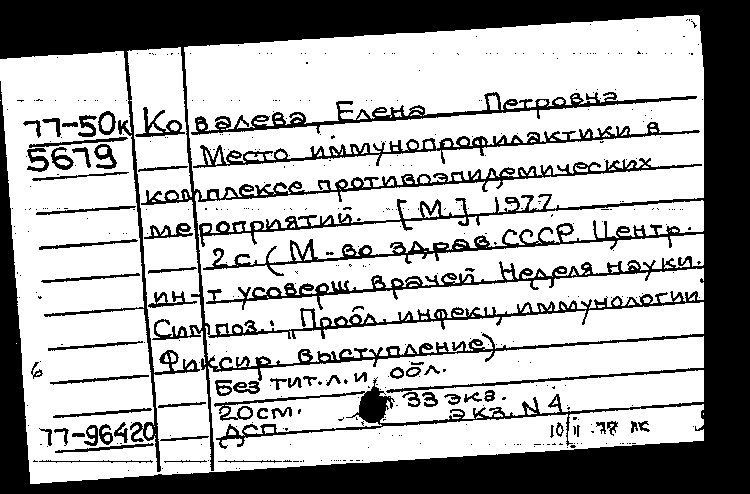 77-50к Ковалева, Елена Петровна
5679 Место иммунопрофилактики в
комплексе противоэпидемических
мероприятий. [М.], 1977.
2 с. (М-во здрав. СССР. Центр.
ин-т усоверш. врачей. Неделя науки.
Симпоз.: „Пробл. инфекц. иммунологии
Фиксир. выступление).
6
Без тит. л. и обл.
20 см. 33 экз.
ДСП. экз. N 4.
77-96420
10/II-78